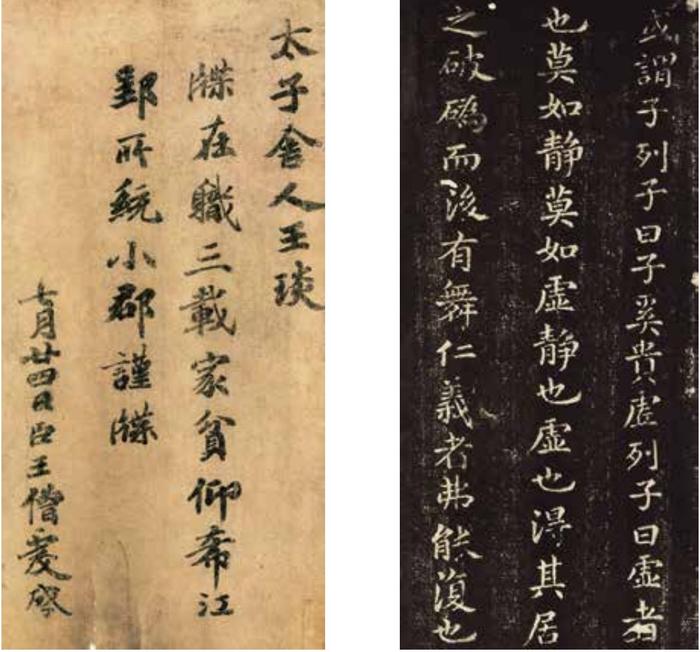 太子舍人王琰
牒在職三載家貧仰希江
郢所統小郡謹牒
七月廿四日臣王僧虔啓
或謂子列子曰子奚貴虛列子曰虛者
也莫如静莫如虛静也虛也得其居
之破䃣而後有舞仁義者弗能復也